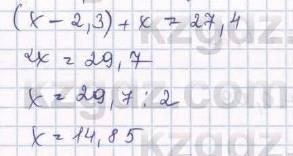 (x - 2,3) + x = 27,4
2x = 29,7
x = 29,7 : 2
x = 14,85